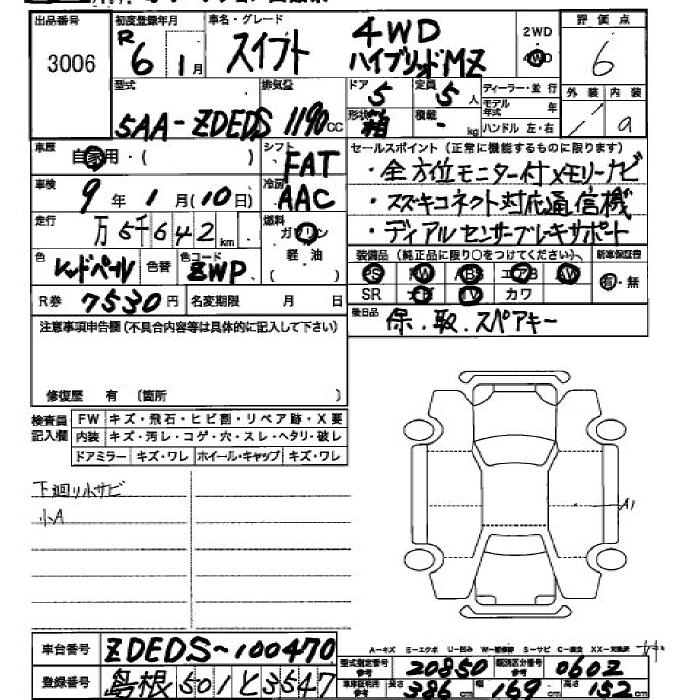 出品番号
3006
初度登録年月
R
6年1月
車名・グレード
スイフト
4WD
ハイブリッドMZ
2WD
4WD
評価点
6
外装 内装
a
型式
5AA-ZDEDS
排気量
1190cc
ドア
5
定員
5人
形状
箱
積載
- kg
ディーラー・並行
モデル年式 年
ハンドル 左・右
車歴
自家用・( )
シフト
FAT
車検
9年1月(10日)
冷房
AAC
走行
万5千642km
燃料
ガソリン
軽油
( )
色
レッドパール
色替
色コード
ZWP
R券
7530円
名変期限 月 日
セールスポイント(正常に機能するものに限ります)
・全方位モニター付メモリーナビ
・スズキコネクト対応通信機
・ディアルセンサーブレーキサポート
装備品(純正品に限り○をつけてください)
新車保証書
PS PW ABS エアB AW
SR ナビ TV カワ
有・無
後日品
保.取.スペアキー
注意事項申告欄(不具合内容等は具体的に記入して下さい)
修復歴 有 (箇所 )
検査員記入欄
FW キズ・飛石・ヒビ割・リペア跡・X要
内装 キズ・汚レ・コゲ・穴・スレ・ヘタリ・破レ
ドアミラー キズ・ワレ ホイール・キャップ キズ・ワレ
下廻り小サビ
小A
A1
車台番号
ZDEDS-100470
登録番号
島根501と3547
A-キズ E-エクボ U-凹み W-補修跡 S-サビ C-腐食 XX-交換済
型式指定番号参考
20850
類別区分番号参考
0602
車体証明用参考
長さ
386cm
幅
169cm
高さ
152cm